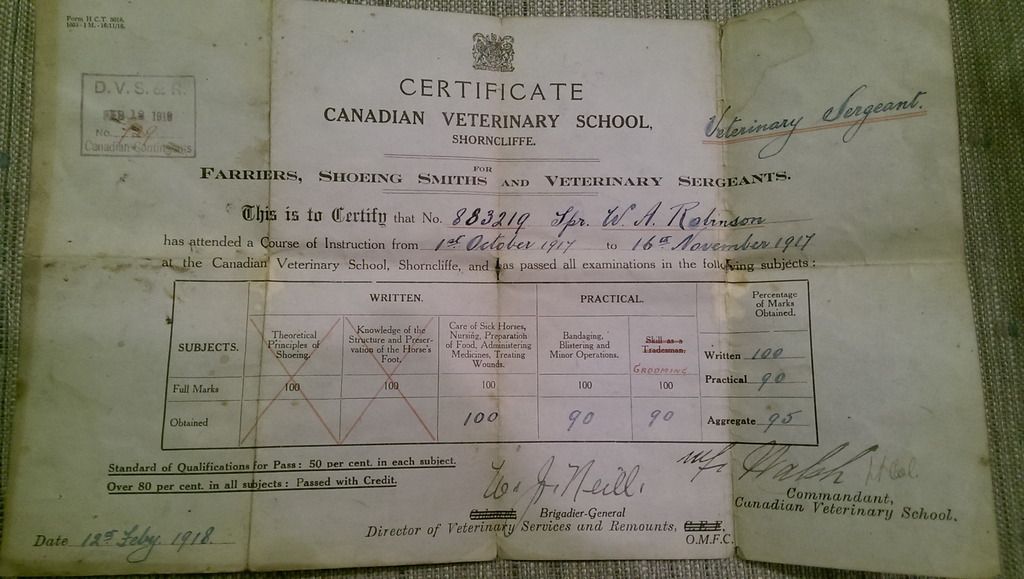 Form H C.T. 5018.
D. V. S. & R.
FEB 12 1918
No. 729
Canadian Contingents
CERTIFICATE
CANADIAN VETERINARY SCHOOL,
SHORNCLIFFE.
Veterinary Sergeant.
FOR
FARRIERS, SHOEING SMITHS AND VETERINARY SERGEANTS.
This is to Certify that No. 883219 Spr. W. A. Robinson
has attended a Course of Instruction from 1st October 1917 to 16th November 1917
at the Canadian Veterinary School, Shorncliffe, and has passed all examinations in the following subjects:
WRITTEN.
PRACTICAL.
Percentage
of Marks
Obtained.
SUBJECTS.
Theoretical
Principles of
Shoeing.
Knowledge of the
Structure and Preser-
vation of the Horse's
Foot.
Care of Sick Horses,
Nursing, Preparation
of Food, Administering
Medicines, Treating
Wounds.
Bandaging,
Blistering and
Minor Operations.
Skill as a
Tradesman.
GROOMING
Written 100
Practical 90
Full Marks 100 100 100 100 100
Obtained 100 90 90
Aggregate 95
Standard of Qualifications for Pass: 50 per cent. in each subject.
Over 80 per cent. in all subjects: Passed with Credit.
Neill
Brigadier-General
Director of Veterinary Services and Remounts, C.E.F.
O.M.F.C.
Walsh
Commandant,
Canadian Veterinary School.
Date 12th Feby 1918.